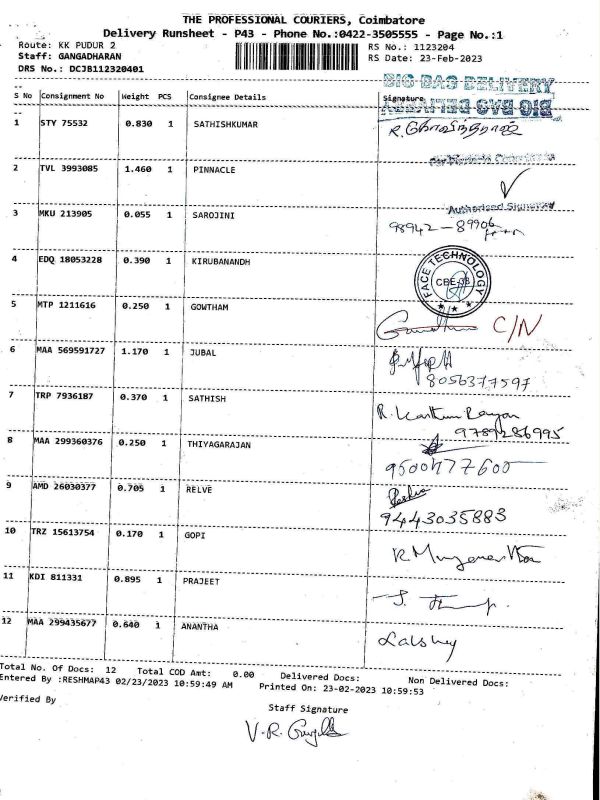 THE PROFESSIONAL COURIERS, Coimbatore
Delivery Runsheet - P43 - Phone No.:0422-3505555 - Page No.:1
Route: KK PUDUR 2 RS No.: 1123204
Staff: GANGADHARAN RS Date: 23-Feb-2023
DRS No.: DCJB112320401
BIG BAG DELIVERY
S No Consignment No Weight PCS Consignee Details Signature
BIG BAG DELIVERY
1 STY 75532 0.830 1 SATHISHKUMAR
R. கோவிந்தராஜ்
2 TVL 3993085 1.460 1 PINNACLE
Authorised Signatory
3 MKU 213905 0.055 1 SAROJINI 98942-89906
4 EDQ 18053228 0.390 1 KIRUBANANDH FACE TECHNOLOGY CBE-38
5 MTP 1211616 0.250 1 GOWTHAM C/N
6 MAA 569591727 1.170 1 JUBAL
8056377597
7 TRP 7936187 0.370 1 SATHISH
9789286995
8 MAA 299360376 0.250 1 THIYAGARAJAN
9500477600
9 AMD 26030377 0.705 1 RELVE
9443035883
10 TRZ 15613754 0.170 1 GOPI
11 KDI 811331 0.895 1 PRAJEET
12 MAA 299435677 0.640 1 ANANTHA
Total No. Of Docs: 12 Total COD Amt: 0.00 Delivered Docs: Non Delivered Docs:
Entered By :RESHMAP43 02/23/2023 10:59:49 AM Printed On: 23-02-2023 10:59:53
Verified By
Staff Signature